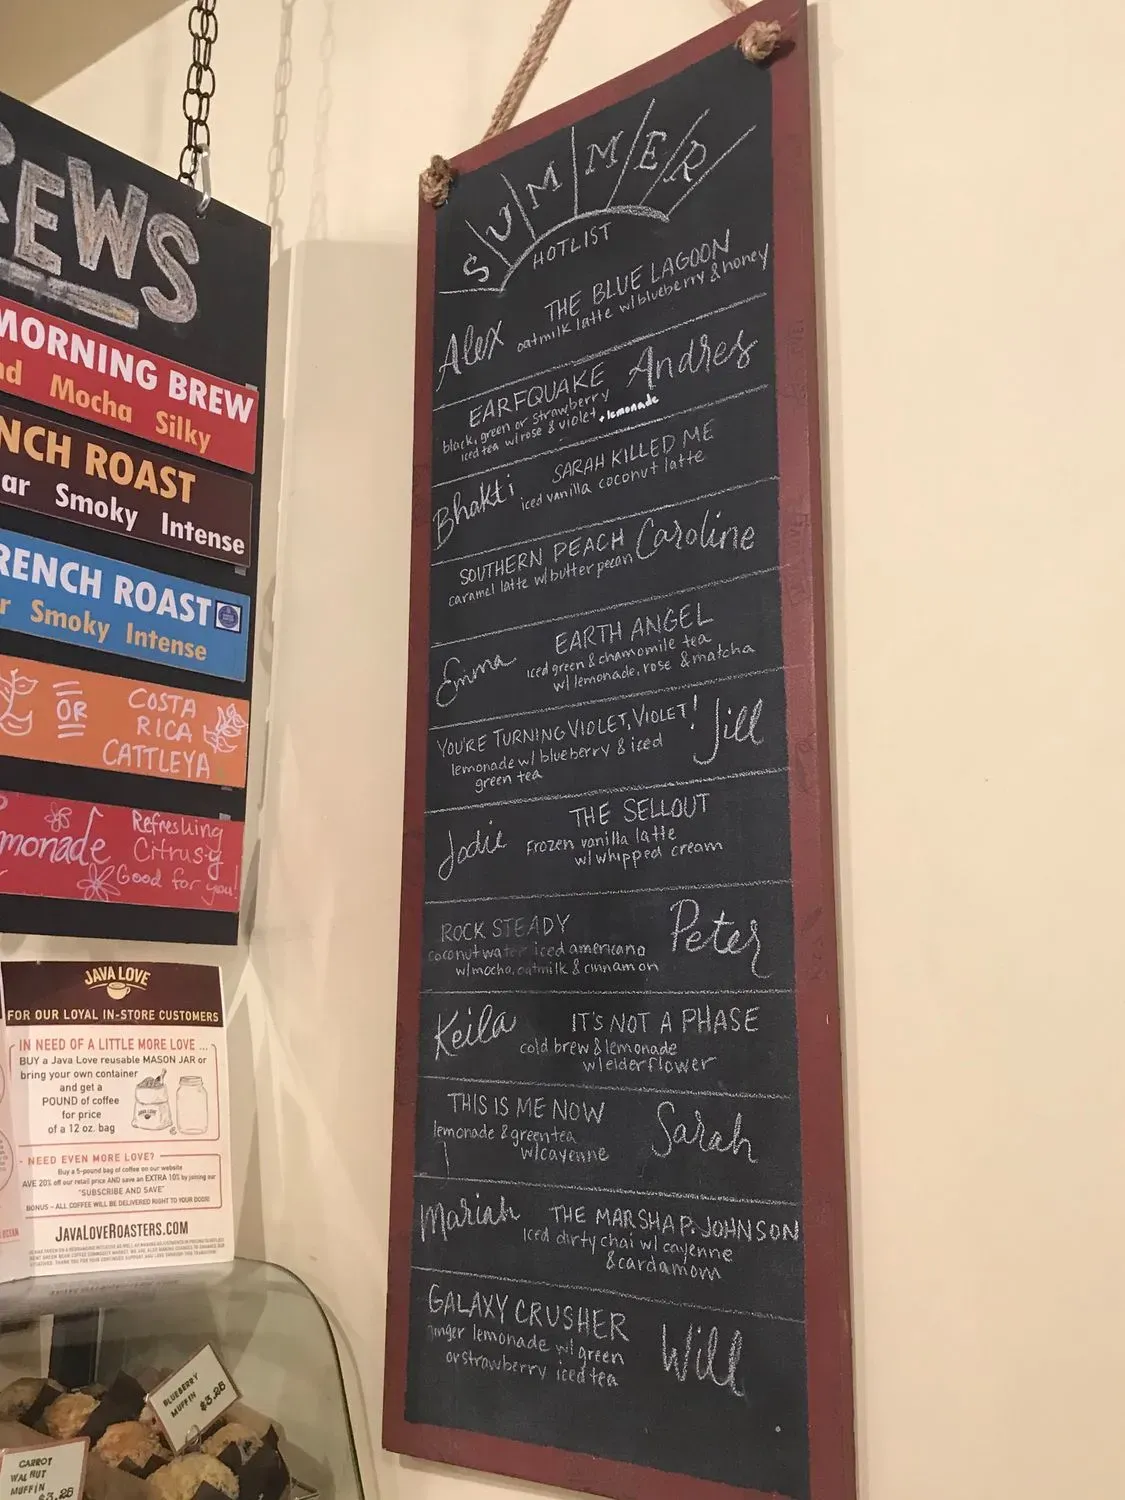 REWS
MORNING BREW
nd Mocha Silky
NCH ROAST
ar Smoky Intense
RENCH ROAST
r Smoky Intense
OR
COSTA
RICA
CATTLEYA
monade
Refreshing
Citrus-y
Good for you!
JAVA LOVE
FOR OUR LOYAL IN-STORE CUSTOMERS
IN NEED OF A LITTLE MORE LOVE ...
BUY a Java Love reusable MASON JAR or
bring your own container
and get a
POUND of coffee
for price
of a 12 oz. bag
NEED EVEN MORE LOVE?
Buy a 5-pound bag of coffee on our website
AVE 20% off our retail price AND save an EXTRA 10% by joining our
"SUBSCRIBE AND SAVE"
BONUS - ALL COFFEE WILL BE DELIVERED RIGHT TO YOUR DOOR!
JAVALOVEROASTERS.COM
BLUEBERRY
MUFFIN $3.25
CARROT
WALNUT
MUFFIN
$3.25
SUMMER
HOTLIST
Alex THE BLUE LAGOON
oatmilk latte w/ blueberry & honey
EARFQUAKE Andres
black, green or strawberry
iced tea w/ rose & violet + lemonade
Bhakti SARAH KILLED ME
iced vanilla coconut latte
SOUTHERN PEACH Caroline
caramel latte w/ butter pecan
Emma EARTH ANGEL
iced green & chamomile tea
w/ lemonade, rose & matcha
YOU'RE TURNING VIOLET, VIOLET! Jill
lemonade w/ blueberry & iced
green tea
Jodie THE SELLOUT
frozen vanilla latte
w/ whipped cream
ROCK STEADY Peter
coconut water iced americano
w/ mocha, oatmilk & cinnamon
Keila IT'S NOT A PHASE
cold brew & lemonade
w/ elderflower
THIS IS ME NOW Sarah
lemonade & green tea
w/ cayenne
Mariah THE MARSHA P. JOHNSON
iced dirty chai w/ cayenne
& cardamom
GALAXY CRUSHER Will
ginger lemonade w/ green
or strawberry iced tea